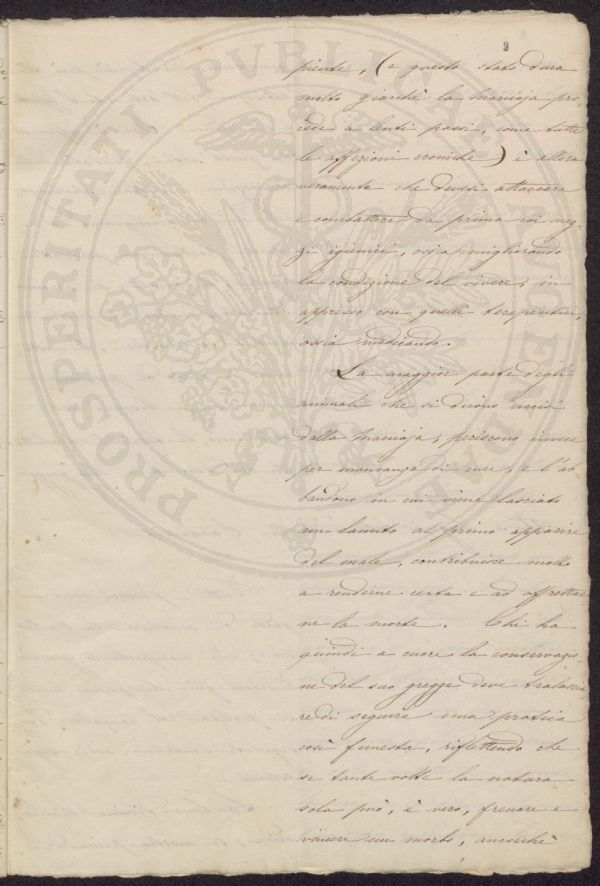 2
piente, (e questo stato dura
molto giacchè la marcioja pro_
cede a lenti passi, come tutte
le affezioni croniche) è allora
veramente che devesi attaccare
e combattere da prima coi mez_
zi igienici, ossia migliorando
la condizione del vivere, in
appresso con quelli terapeutici,
ossia medicando.
La maggior parte degli
animali che si dicono uccisi
dalla marcioja, periscono invece
per mancanza di cure, e l'ab_
bandono in cui viene lasciato
un lanuto al primo apparire
del male, contribuisce molto
a renderne certa e ad affrettar
ne la morte. Chi ha
quindi a cuore la conservazio_
ne del suo gregge deve tralascia
re di seguire una pratica
così funesta, riflettendo che
se tante volte la natura
sola può, è vero, frenare e
vincere un morbo, ancorchè
PROSPERITATI PVBLICAE AVGENDAE